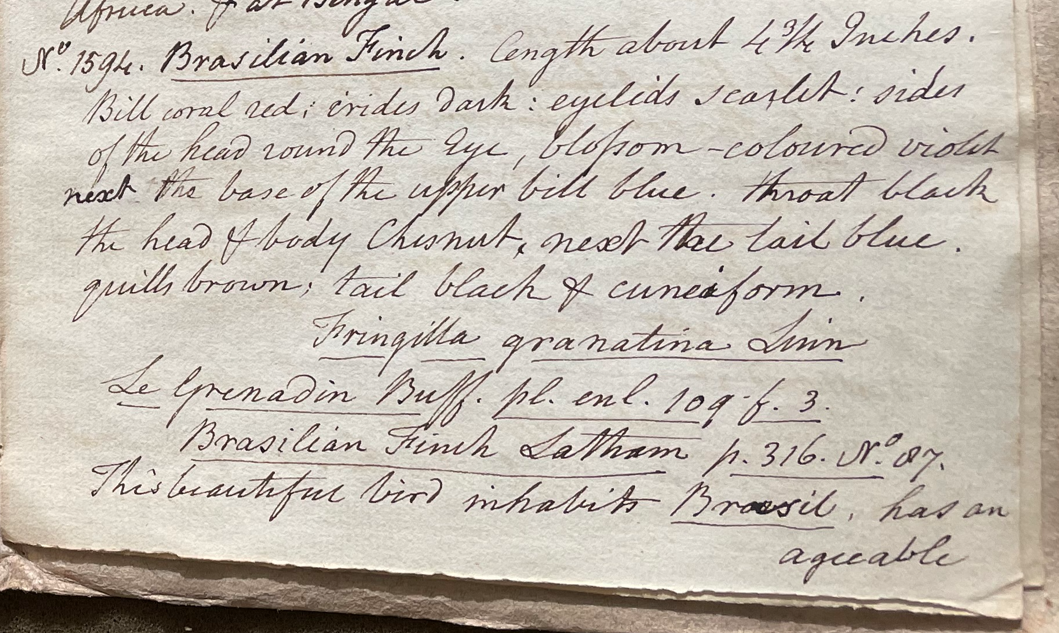 Africa. & at Bengal.
Nº. 1594. Brasilian Finch. Length about 4 3/4 Inches.
Bill coral red; irides dark: eyelids scarlet: sides
of the head round the Eye, bloſsom-coloured violet
next the base of the upper bill blue. throat black
the head & body Chesnut, next the tail blue.
quills brown; tail black & cuneiform.
Fringilla granatina Linn
Le Grenadin Buff. pl. enl. 109. f. 3.
Brasilian Finch Latham p. 316. Nº. 87.
This beautiful bird inhabits Brasil, has an
ageeable